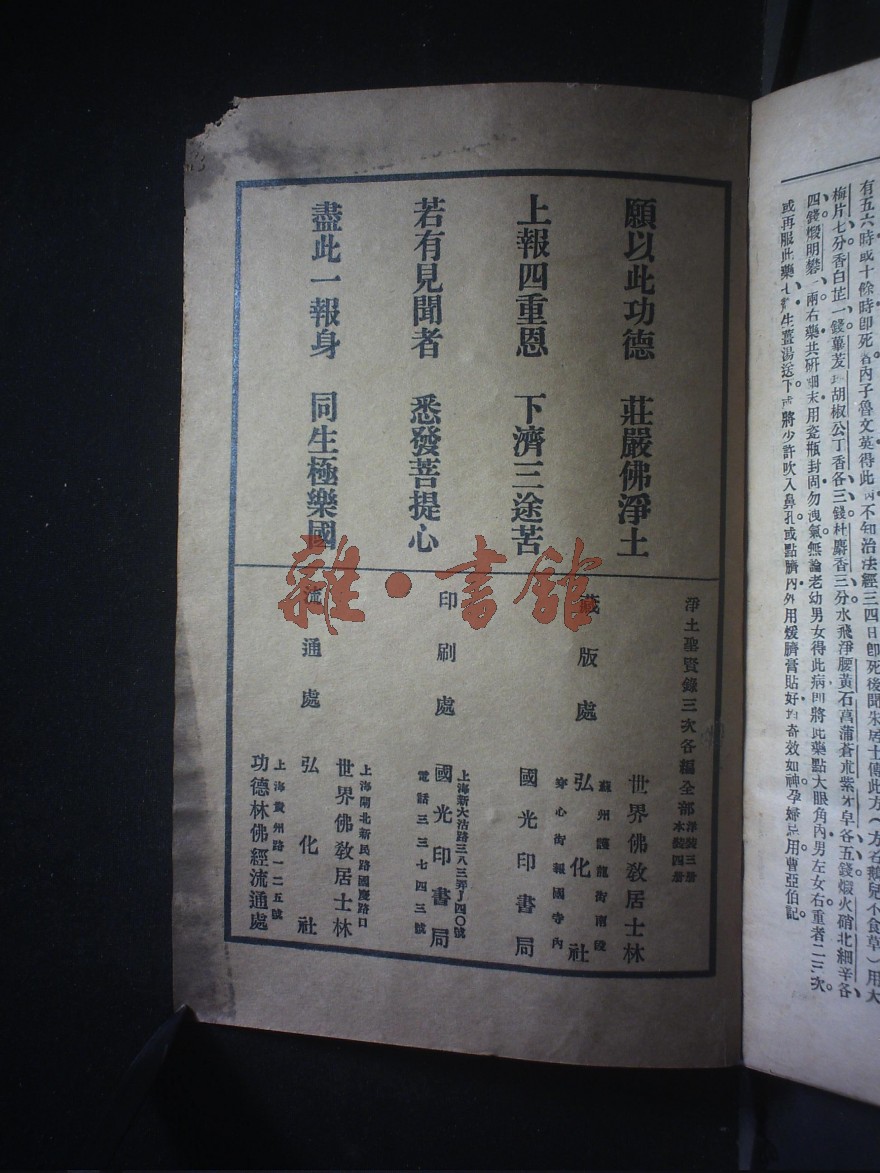 有五六時或十餘時卽死者內子魯文英得此病不知治法經三四日卽死後聞朱居士傳此方(方名鵝兒不食草)用大
梅片七分香白芷一錢蓽茇 胡椒公丁香各三錢杜麝香三分水飛淨腰黃石菖蒲蒼朮紫牙皁各五錢煅火硝北細辛各
四錢煅明礬一兩右藥共硏細末用瓷瓶封固勿洩氣無論老幼男女得此病卽將此藥點大眼角內男左女右重者二三次
或再服此藥 生薑湯送下或將少許吹入鼻孔或點臍內外用煖臍膏貼好均奇效如神孕婦忌用曹亞伯記
願以此功德 莊嚴佛淨土
上報四重恩 下濟三途苦
若有見聞者 悉發菩提心
盡此一報身 同生極樂國
淨土聖賢錄三次各編全部 洋裝三册 木裝四册
世界佛敎居士林
藏版處 蘇州護龍街南段 弘化社 穿心街報國寺內
國光印書局
印刷處 上海新大沽路三八三弄J四〇號 國光印書局 電話三三七四三號
上海閘北新民路國慶路口
世界佛敎居士林
流通處 弘化社
上海貴州路一二五號
功德林佛經流通處
雜·書館